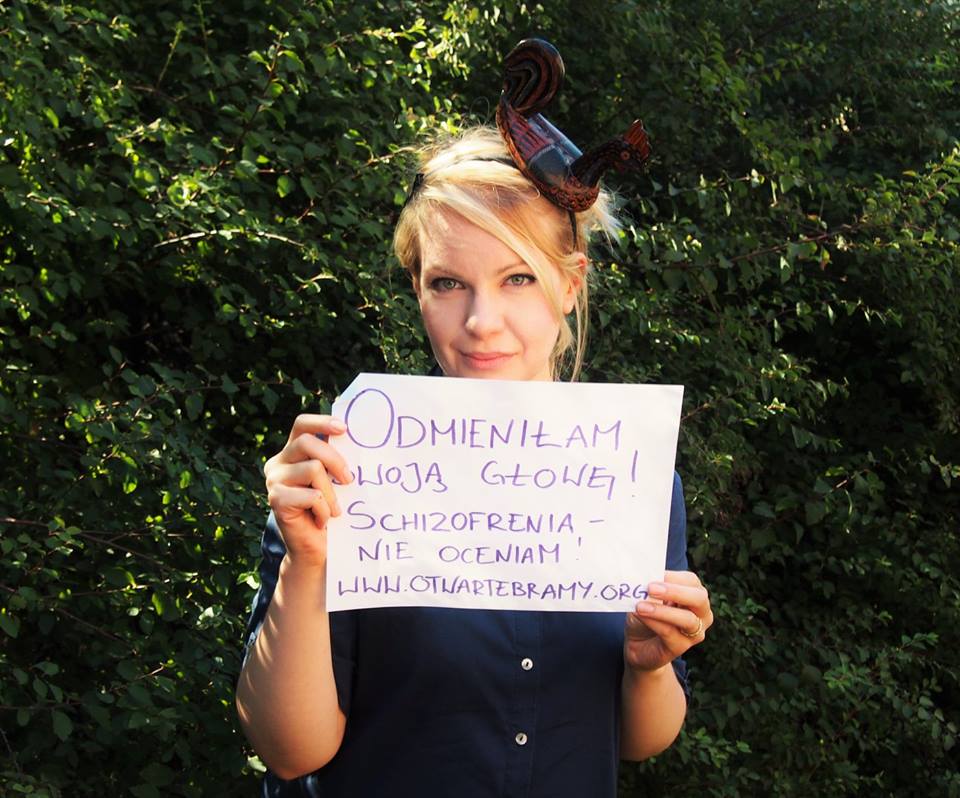 ODMIENIŁAM
SWOJĄ GŁOWĘ!
SCHIZOFRENIA -
NIE OCENIAM!
WWW.OTWARTEBRAMY.ORG